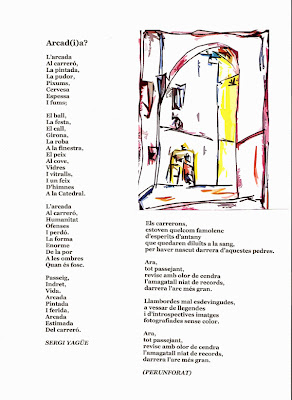 Arcad(i)a?
L'arcada
Al carreró,
La pintada,
La pudor,
Pixums,
Cervesa
Espessa
I fums;
El ball,
La festa,
El call,
Girona,
La roba
A la finestra,
El peix
Al cove,
Vidres
I vitralls,
I un feix
D'himnes
A la Catedral.
L'arcada
Al carreró,
Humanitat
Ofenses
I perdó.
La forma
Enorme
De la por
A les ombres
Quan és fosc.
Passeig,
Indret,
Vida.
Arcada
Pintada
I ferida,
Arcada
Estimada
Del carreró.
SERGI YAGÜE
Els carrerons,
estoven quelcom famolenc
d'esperits d'antany
que quedaren diluïts a la sang,
per haver nascut darrera d'aquestes pedres.
Ara,
tot passejant,
revisc amb olor de cendra
l'amagatall niat de records,
darrera l'arc més gran.
Llambordes mal esdevingudes,
a vessar de llegendes
i d'introspectives imatges
fotografiades sense color.
Ara,
tot passejant,
revisc amb olor de cendra
l'amagatall niat de records,
darrera l'arc més gran.
(PERUNFORAT)